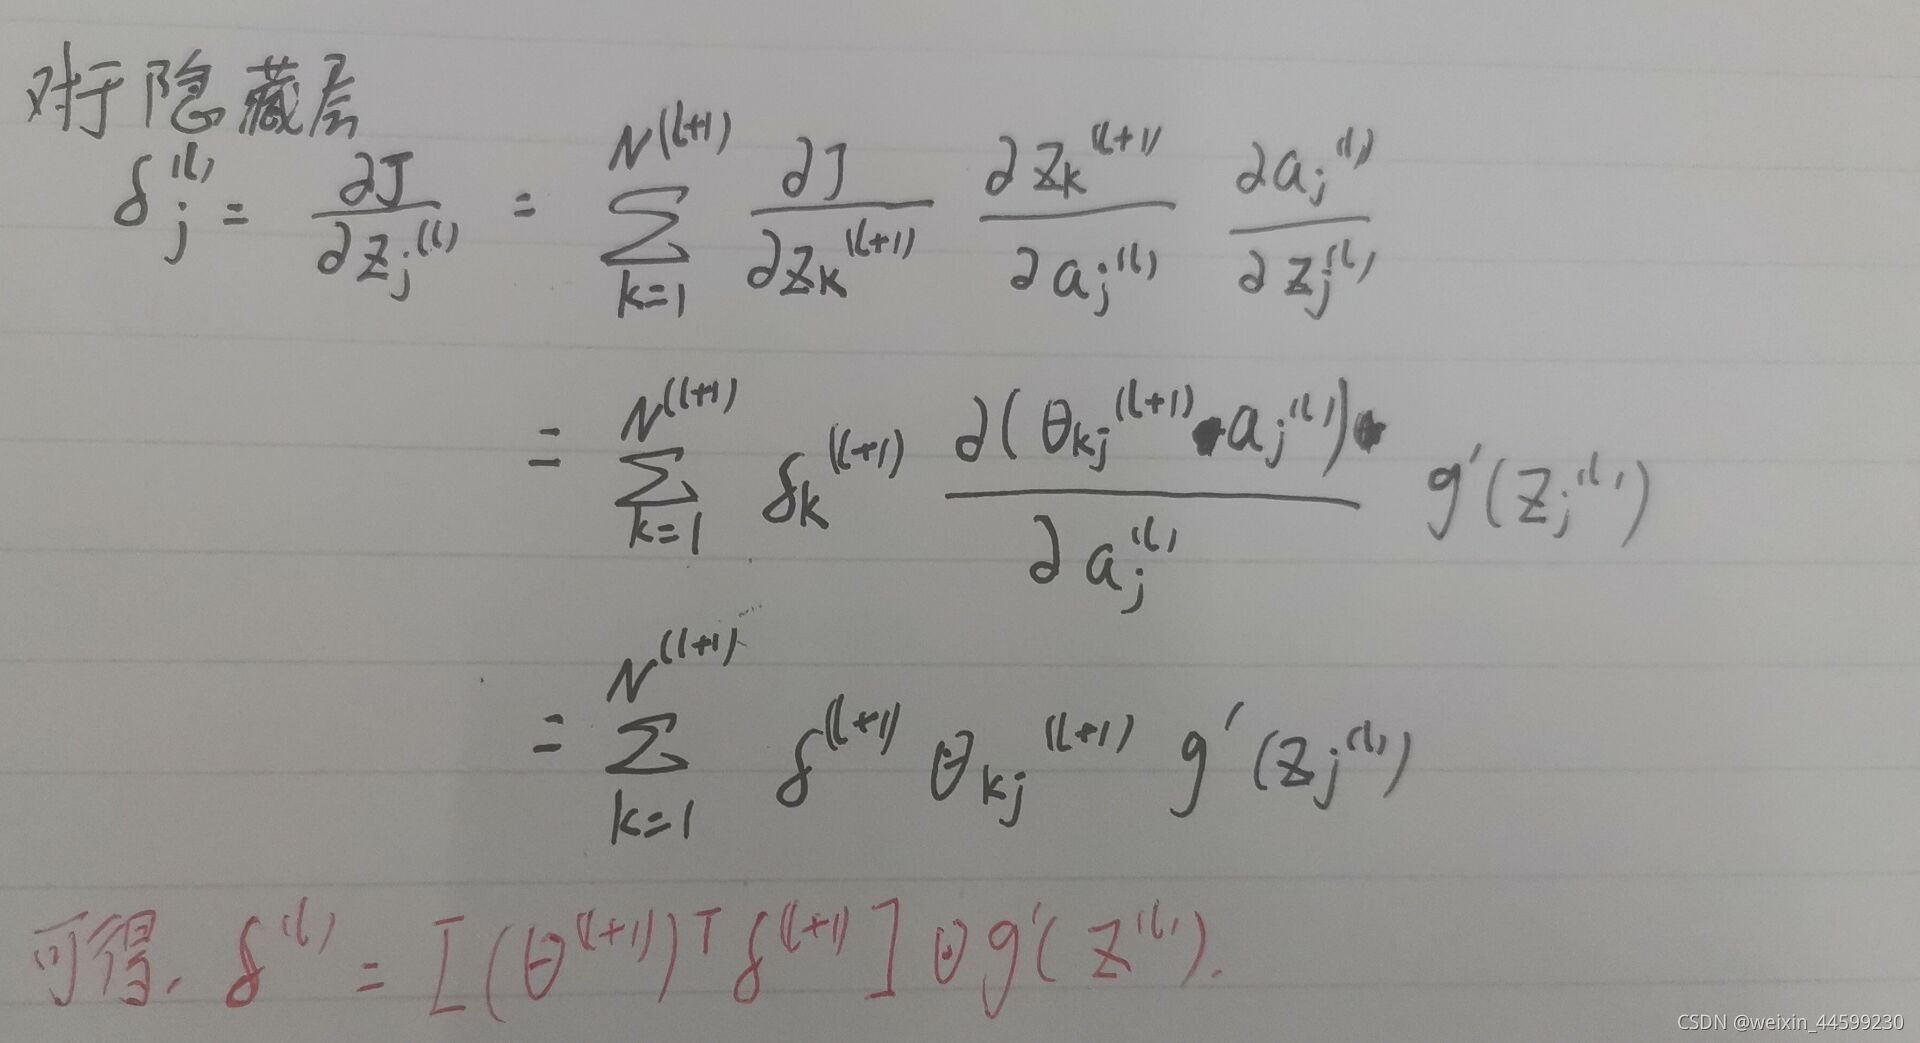 对于隐藏层
δ_j^{(l)} = \frac{∂J}{∂z_j^{(l)}} = \sum_{k=1}^{N^{(l+1)}} \frac{∂J}{∂z_k^{(l+1)}} \frac{∂z_k^{(l+1)}}{∂a_j^{(l)}} \frac{∂a_j^{(l)}}{∂z_j^{(l)}}
= \sum_{k=1}^{N^{(l+1)}} δ_k^{(l+1)} \frac{∂(θ_{kj}^{(l+1)} a_j^{(l)})}{∂a_j^{(l)}} g'(z_j^{(l)})
= \sum_{k=1}^{N^{(l+1)}} δ^{(l+1)} θ_{kj}^{(l+1)} g'(z_j^{(l)})
可得, δ^{(l)} = [(θ^{(l+1)})^T δ^{(l+1)}] ⊙ g'(z^{(l)}).
CSDN @weixin_44599230